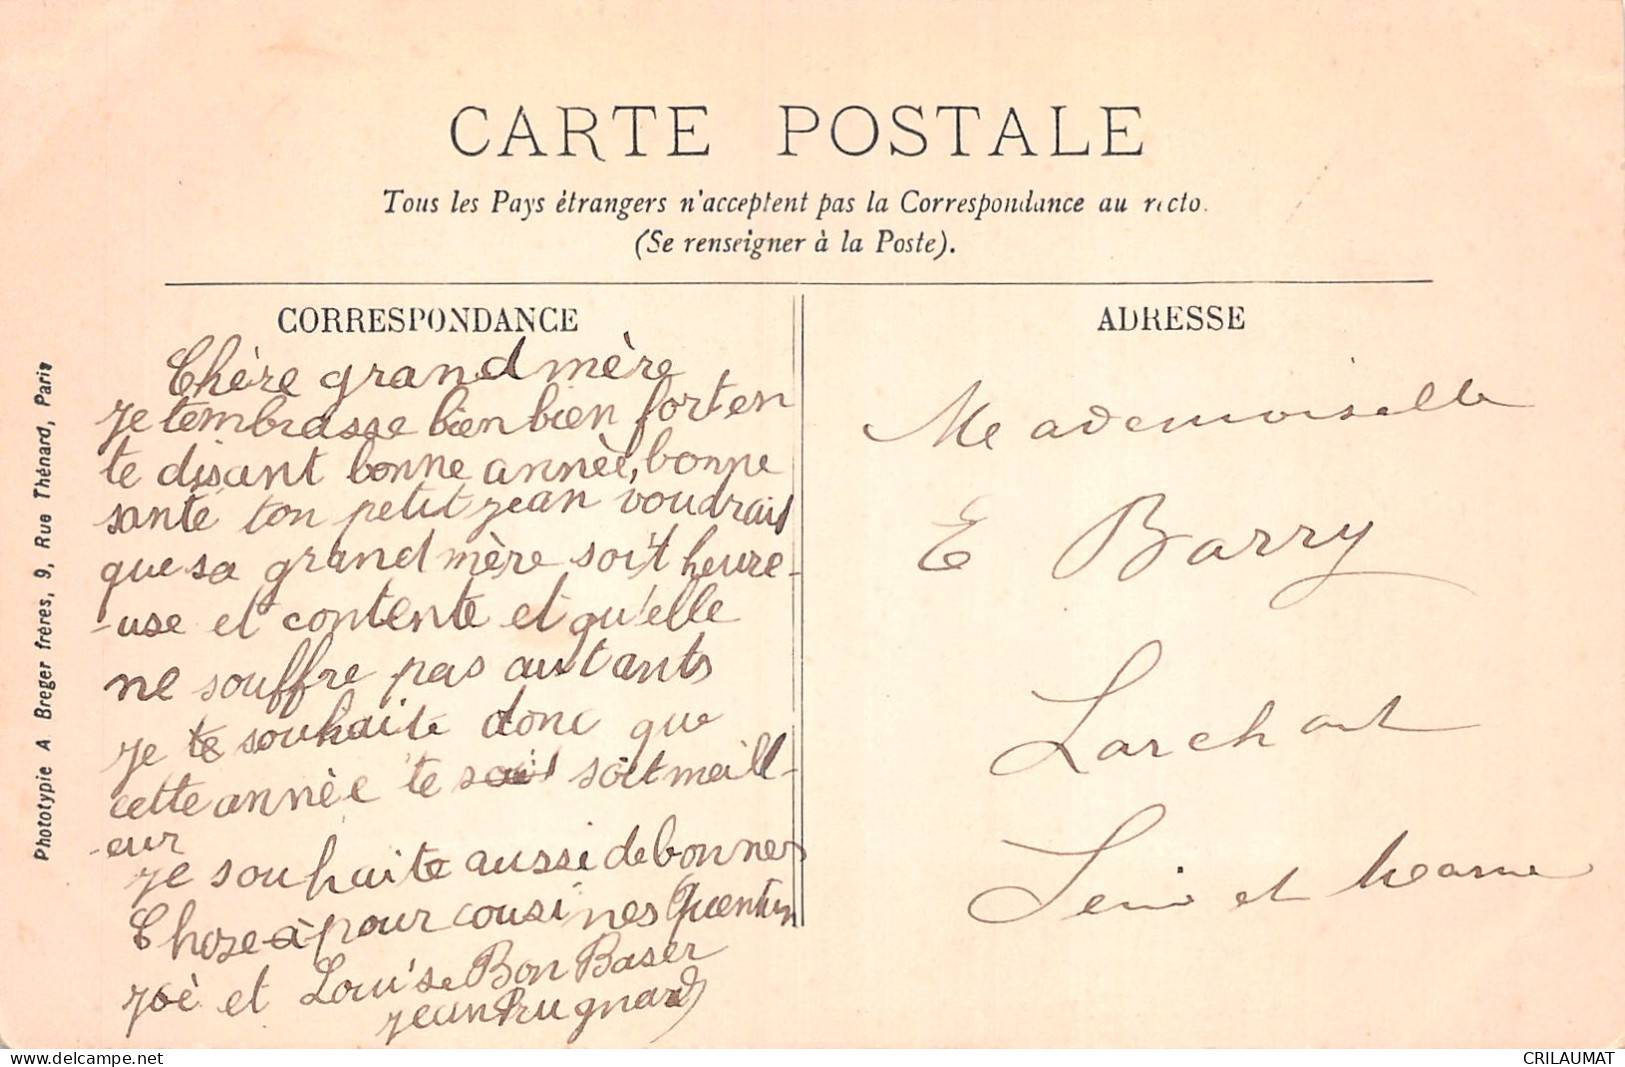 CARTE POSTALE
Tous les Pays étrangers n'acceptent pas la Correspondance au recto.
(Se renseigner à la Poste).
CORRESPONDANCE
Chère grand mère
je tembrasse bien bien fort en
te disant bonne année, bonne
santé ton petit jean voudrais
que sa grand mère soit heure-
-use et contente et qu'elle
ne souffre pas autants
je te souhaite donc que
cette année te soit soit meill-
-eur
je souhaite aussi de bonnes
Choze à pour cousines Quentin
zoè et Louise Bon Baser
jean Prugnard
ADRESSE
Mademoiselle
E Barry
Larchant
Seine et Marne
Phototypie A Breger frères, 9, Rue Thénard, Paris
CRILAUMAT